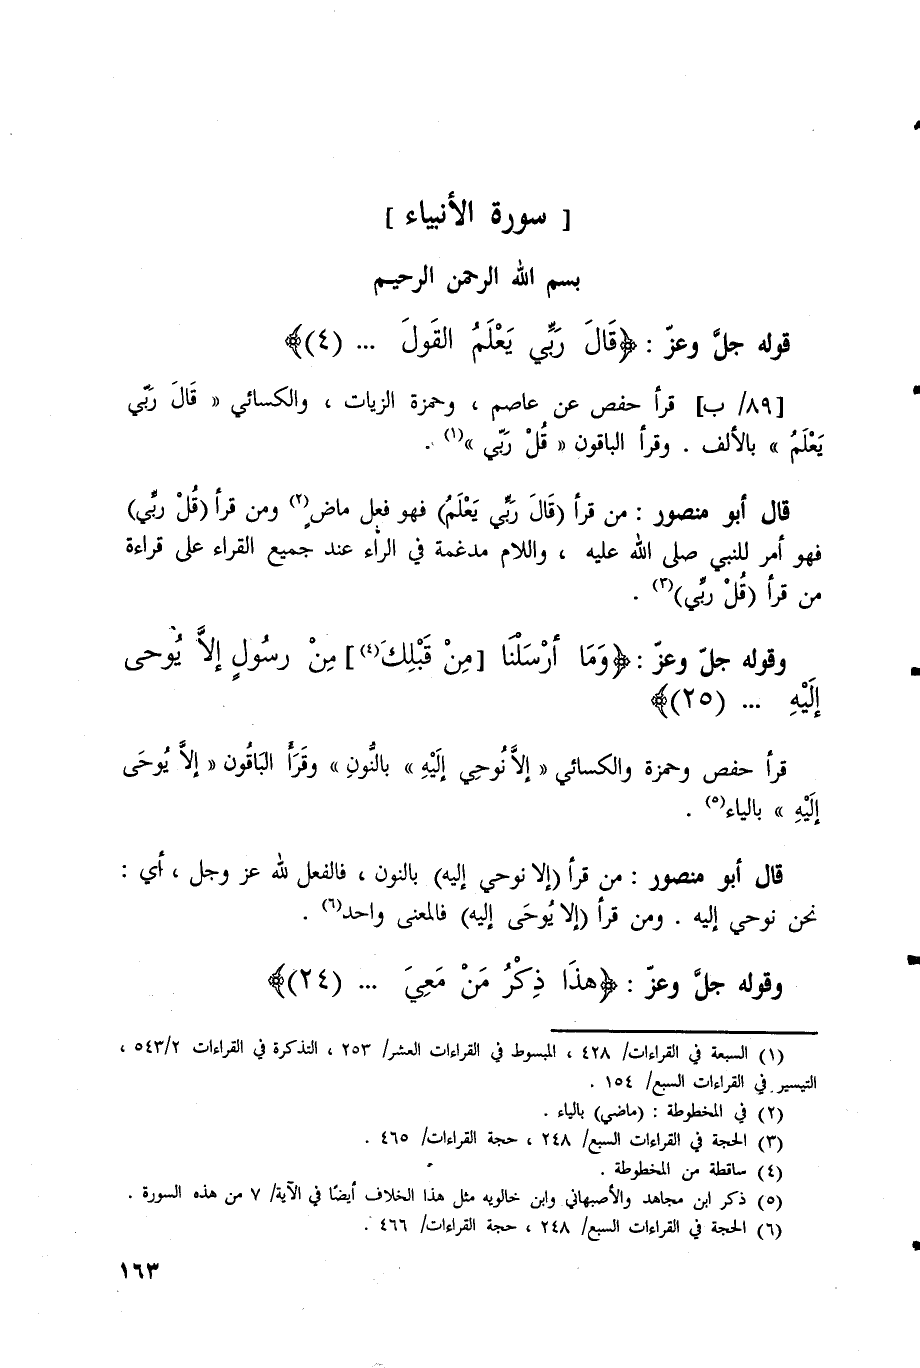 [ سورة الأنبياء ]
بسم الله الرحمن الرحيم
قوله جلَّ وعزّ : ﴿قَالَ رَبِّي يَعْلَمُ القَولَ ... (٤)﴾
[٨٩/ ب] قرأ حفص عن عاصم ، وحمزة الزيات ، والكسائي « قَالَ رَبِّي
يَعْلَمُ » بالألف . وقرأ الباقون « قُلْ رَبِّي »(١) .
قال أبو منصور : من قرأ (قَالَ رَبِّي يَعْلَمُ) فهو فعل ماضٍ(٢) ومن قرأ (قُلْ ربِّي)
فهو أمر للنبي صلى الله عليه ، واللام مدغمة في الراء عند جميع القراء على قراءة
من قرأ (قُلْ ربِّي)(٣) .
وقوله جلّ وعزّ : ﴿وَمَا أرْسَلْنَا [مِنْ قَبْلِكَ(٤)] مِنْ رسُولٍ إلاَّ يُوحى
إلَيْهِ ... (٢٥)﴾
قرأ حفص وحمزة والكسائي « إلاَّ نُوحِي إلَيْهِ » بالنُّونِ » وقَرَأ البَاقُون « إلاَّ يُوحَى
إلَيْهِ » بالياء(٥) .
قال أبو منصور : من قرأ (إلا نوحي إليه) بالنون ، فالفعل لله عز وجل ، أي :
نحن نوحي إليه . ومن قرأ (إلا يُوحَى إليه) فالمعنى واحد(٦) .
وقوله جلَّ وعزّ : ﴿هذَا ذِكْرُ مَنْ مَعِيَ ... (٢٤)﴾
(١) السبعة في القراءات/ ٤٢٨ ، المبسوط في القراءات العشر/ ٢٥٣ ، التذكرة في القراءات ٥٤٣/٢ ،
التيسير في القراءات السبع/ ١٥٤ .
(٢) في المخطوطة : (ماضي) بالياء .
(٣) الحجة في القراءات السبع/ ٢٤٨ ، حجة القراءات/ ٤٦٥ .
(٤) ساقطة من المخطوطة .
(٥) ذكر ابن مجاهد والأصبهاني وابن خالويه مثل هذا الخلاف أيضًا في الآية/ ٧ من هذه السورة .
(٦) الحجة في القراءات السبع/ ٢٤٨ ، حجة القراءات/ ٤٦٦ .
١٦٣